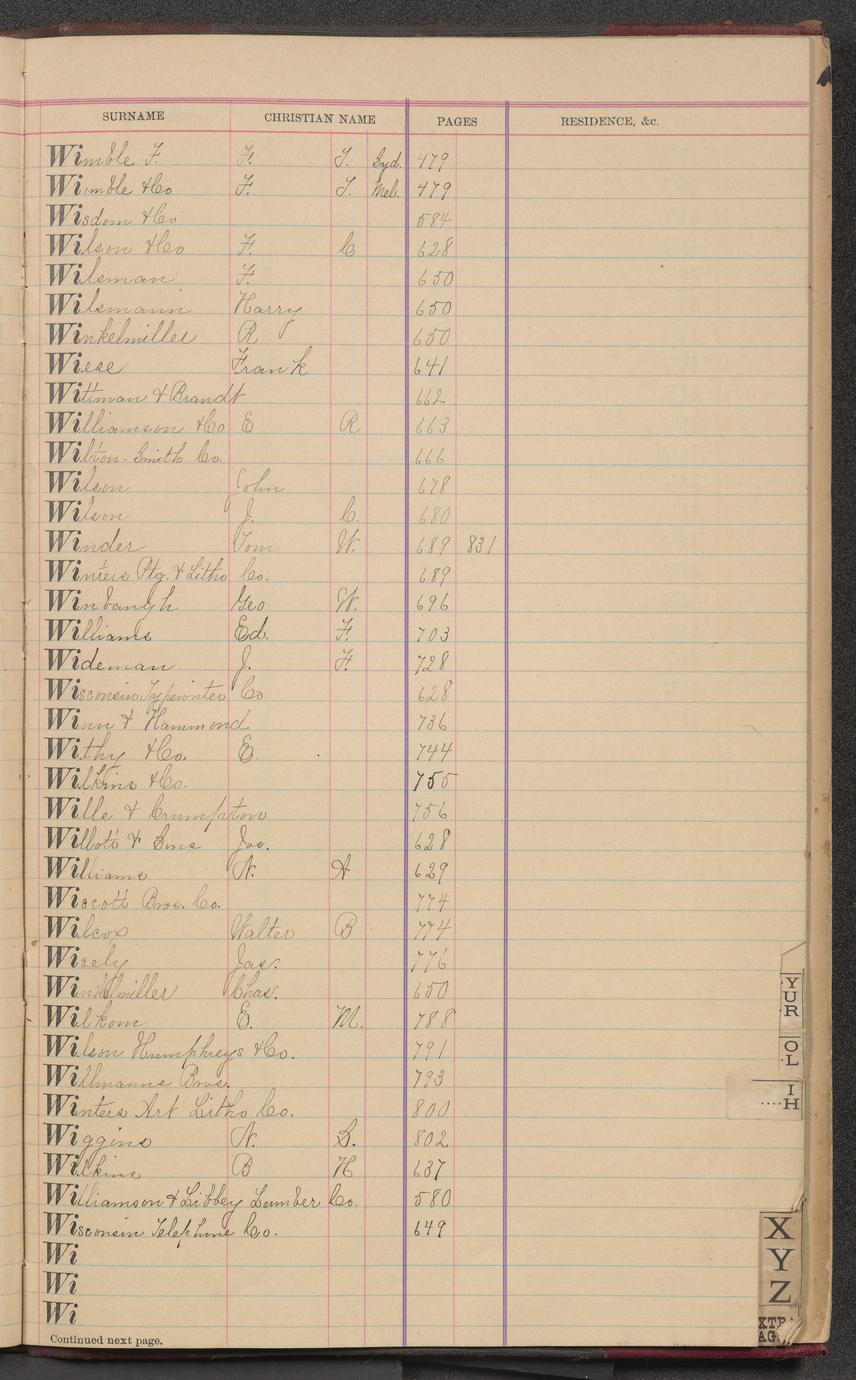 SURNAME CHRISTIAN NAME PAGES RESIDENCE, &c.
Wimble F. F. T. Syd. 479
Wimble & Co F. T. Mel. 479
Wisdom & Co 584
Wilson & Co F. C 628
Wilsman F. 650
Wilsmann Harry 650
Winkelmiller R 650
Wiese Frank 641
Wittman & Brandt 662
Williamson & Co E R 663
Wilton-Smith Co. 666
Wilson John 678
Wilson J. C. 680
Winder Tom W. 689 831
Winters Ptg. & Litho Co. 689
Winbaugh Geo W. 696
Williams Ed. F. 703
Wideman J. F. 728
Wisconsin Typewriter Co 628
Winn & Hammond 736
Withy & Co. E. 744
Wilkins & Co. 755
Wills & Crumpton 756
Wilbott & Sons Jos. 628
Williams N. A 629
Wiscott Bros. Co. 774
Wilcox Walter B 774
Wisely Jas. 776
Winkelmiller Chas. 650
Wilkom E. M. 788
Wilson Humphreys & Co. 791
Willmanns Bros. 793
Winters Art Litho Co. 800
Wiggins N. S. 802
Wilkins B H 637
Williamson & Libbey Lumber Co. 580
Wisconsin Telephone Co. 649
Wi
Wi
Wi
Continued next page.
YUR
OL
IH
XYZ